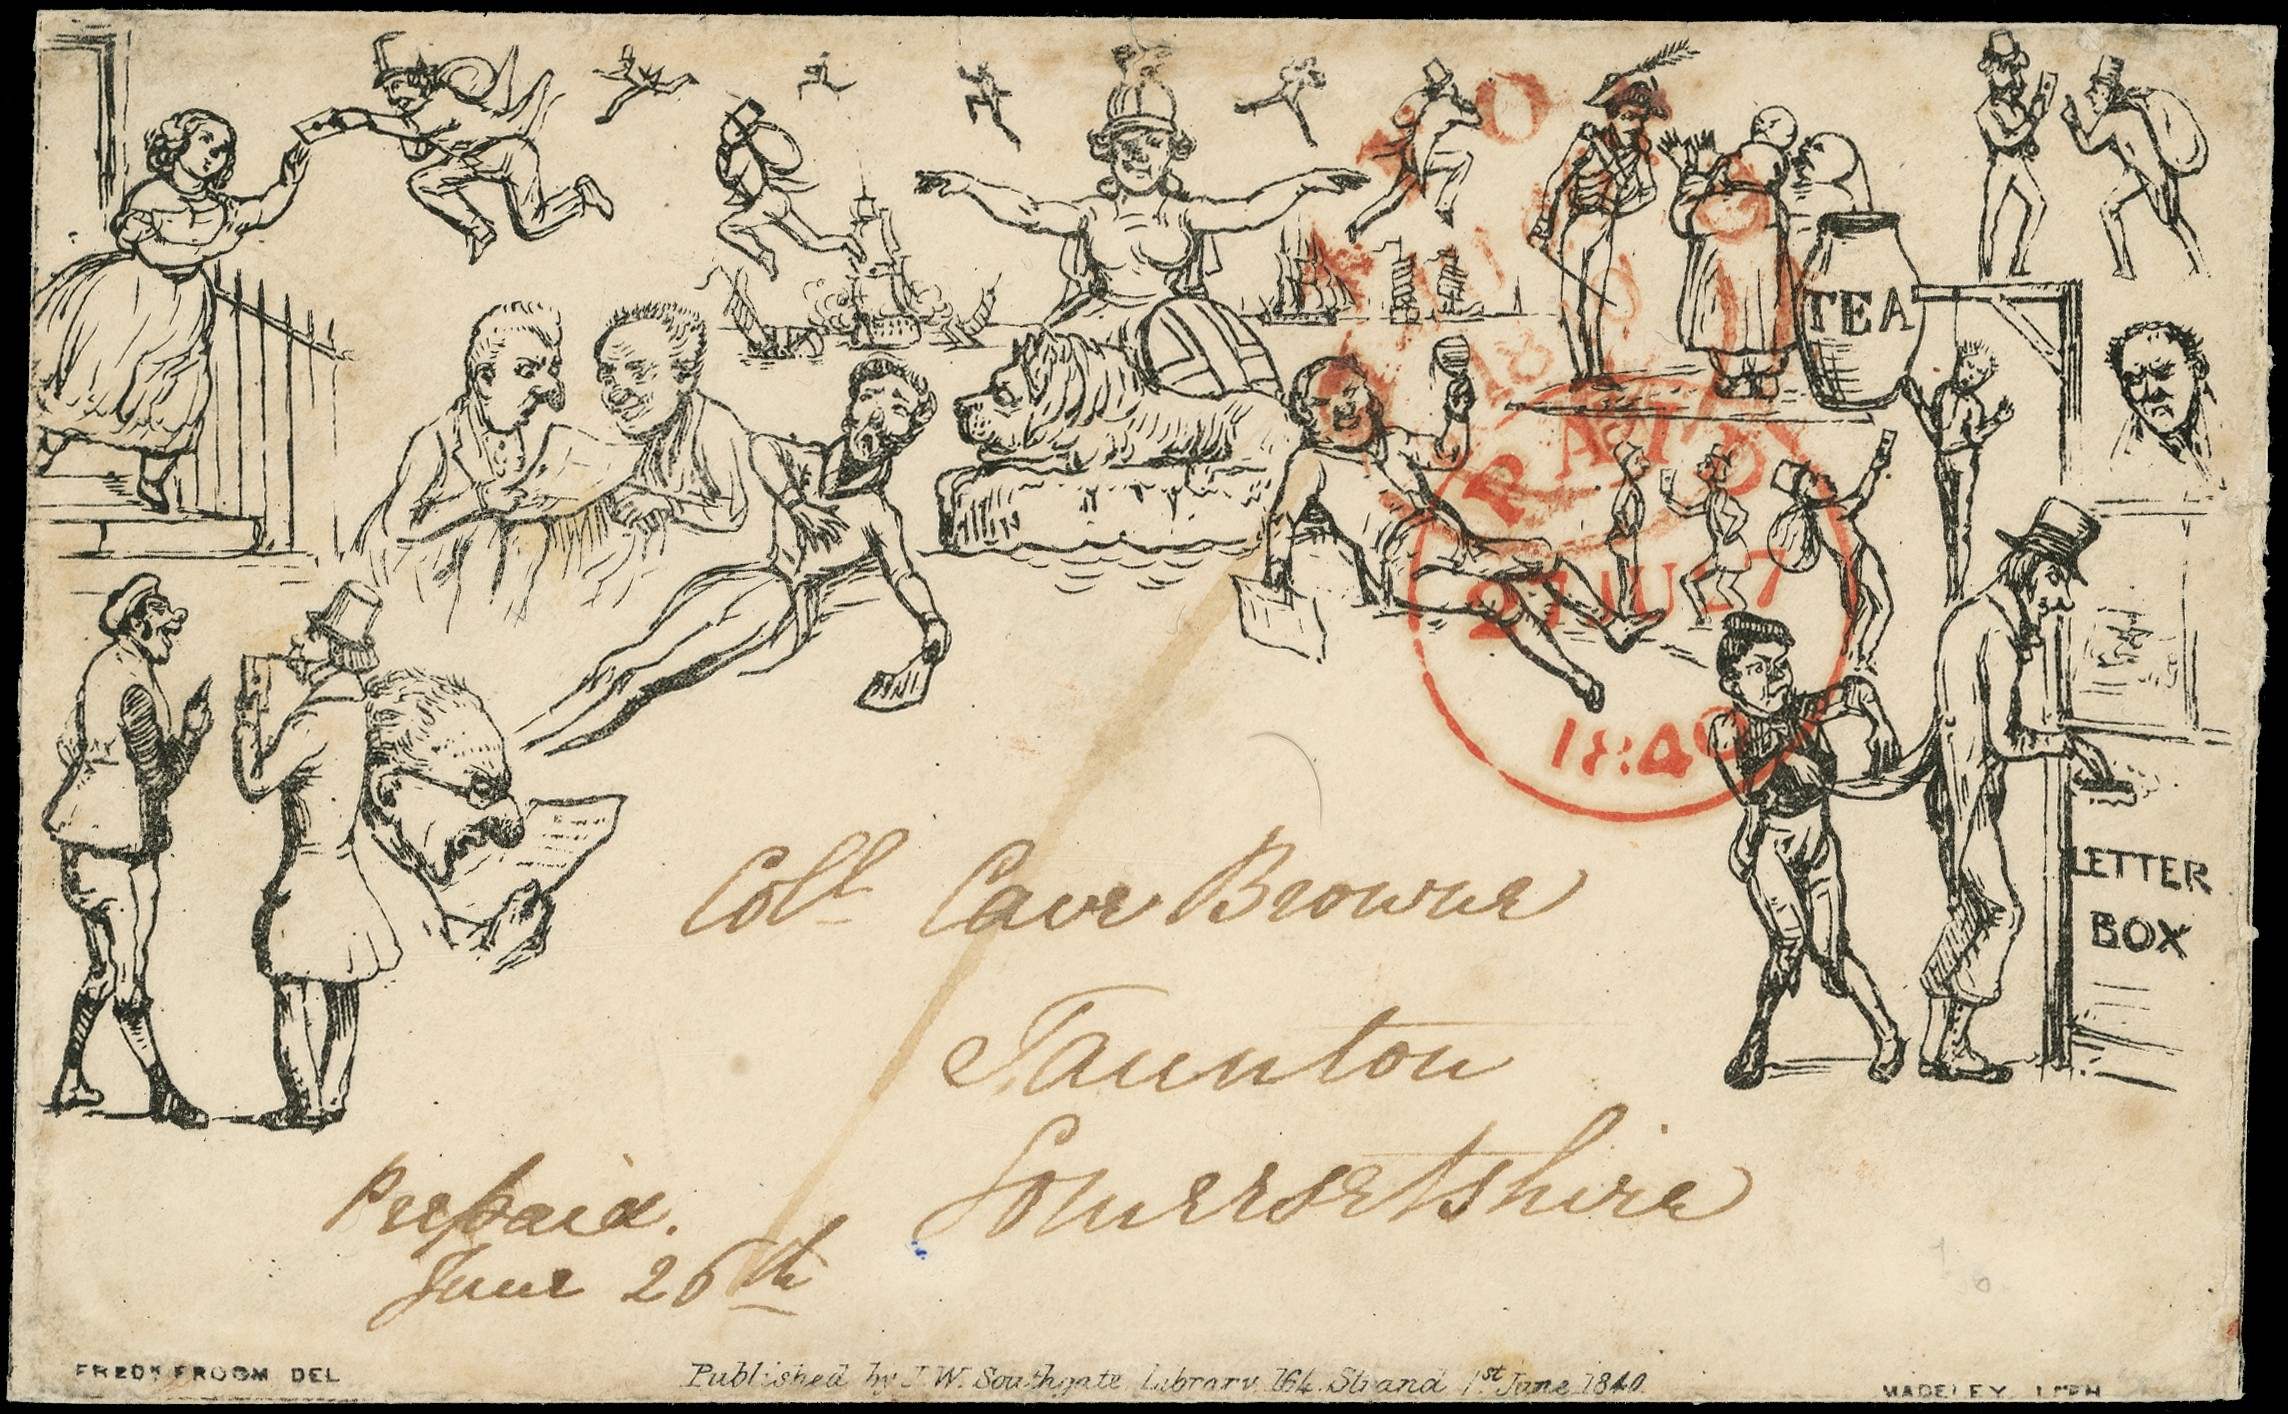 TEA
PAID
27 JU 27
1840
LETTER
BOX
Coll Cave Browne
Taunton
Somersetshire
Prepaid.
June 26th
FREDK FROOM DEL
Published by J.W. Southgate Library 164 Strand 1st June 1840
MADELEY LITH